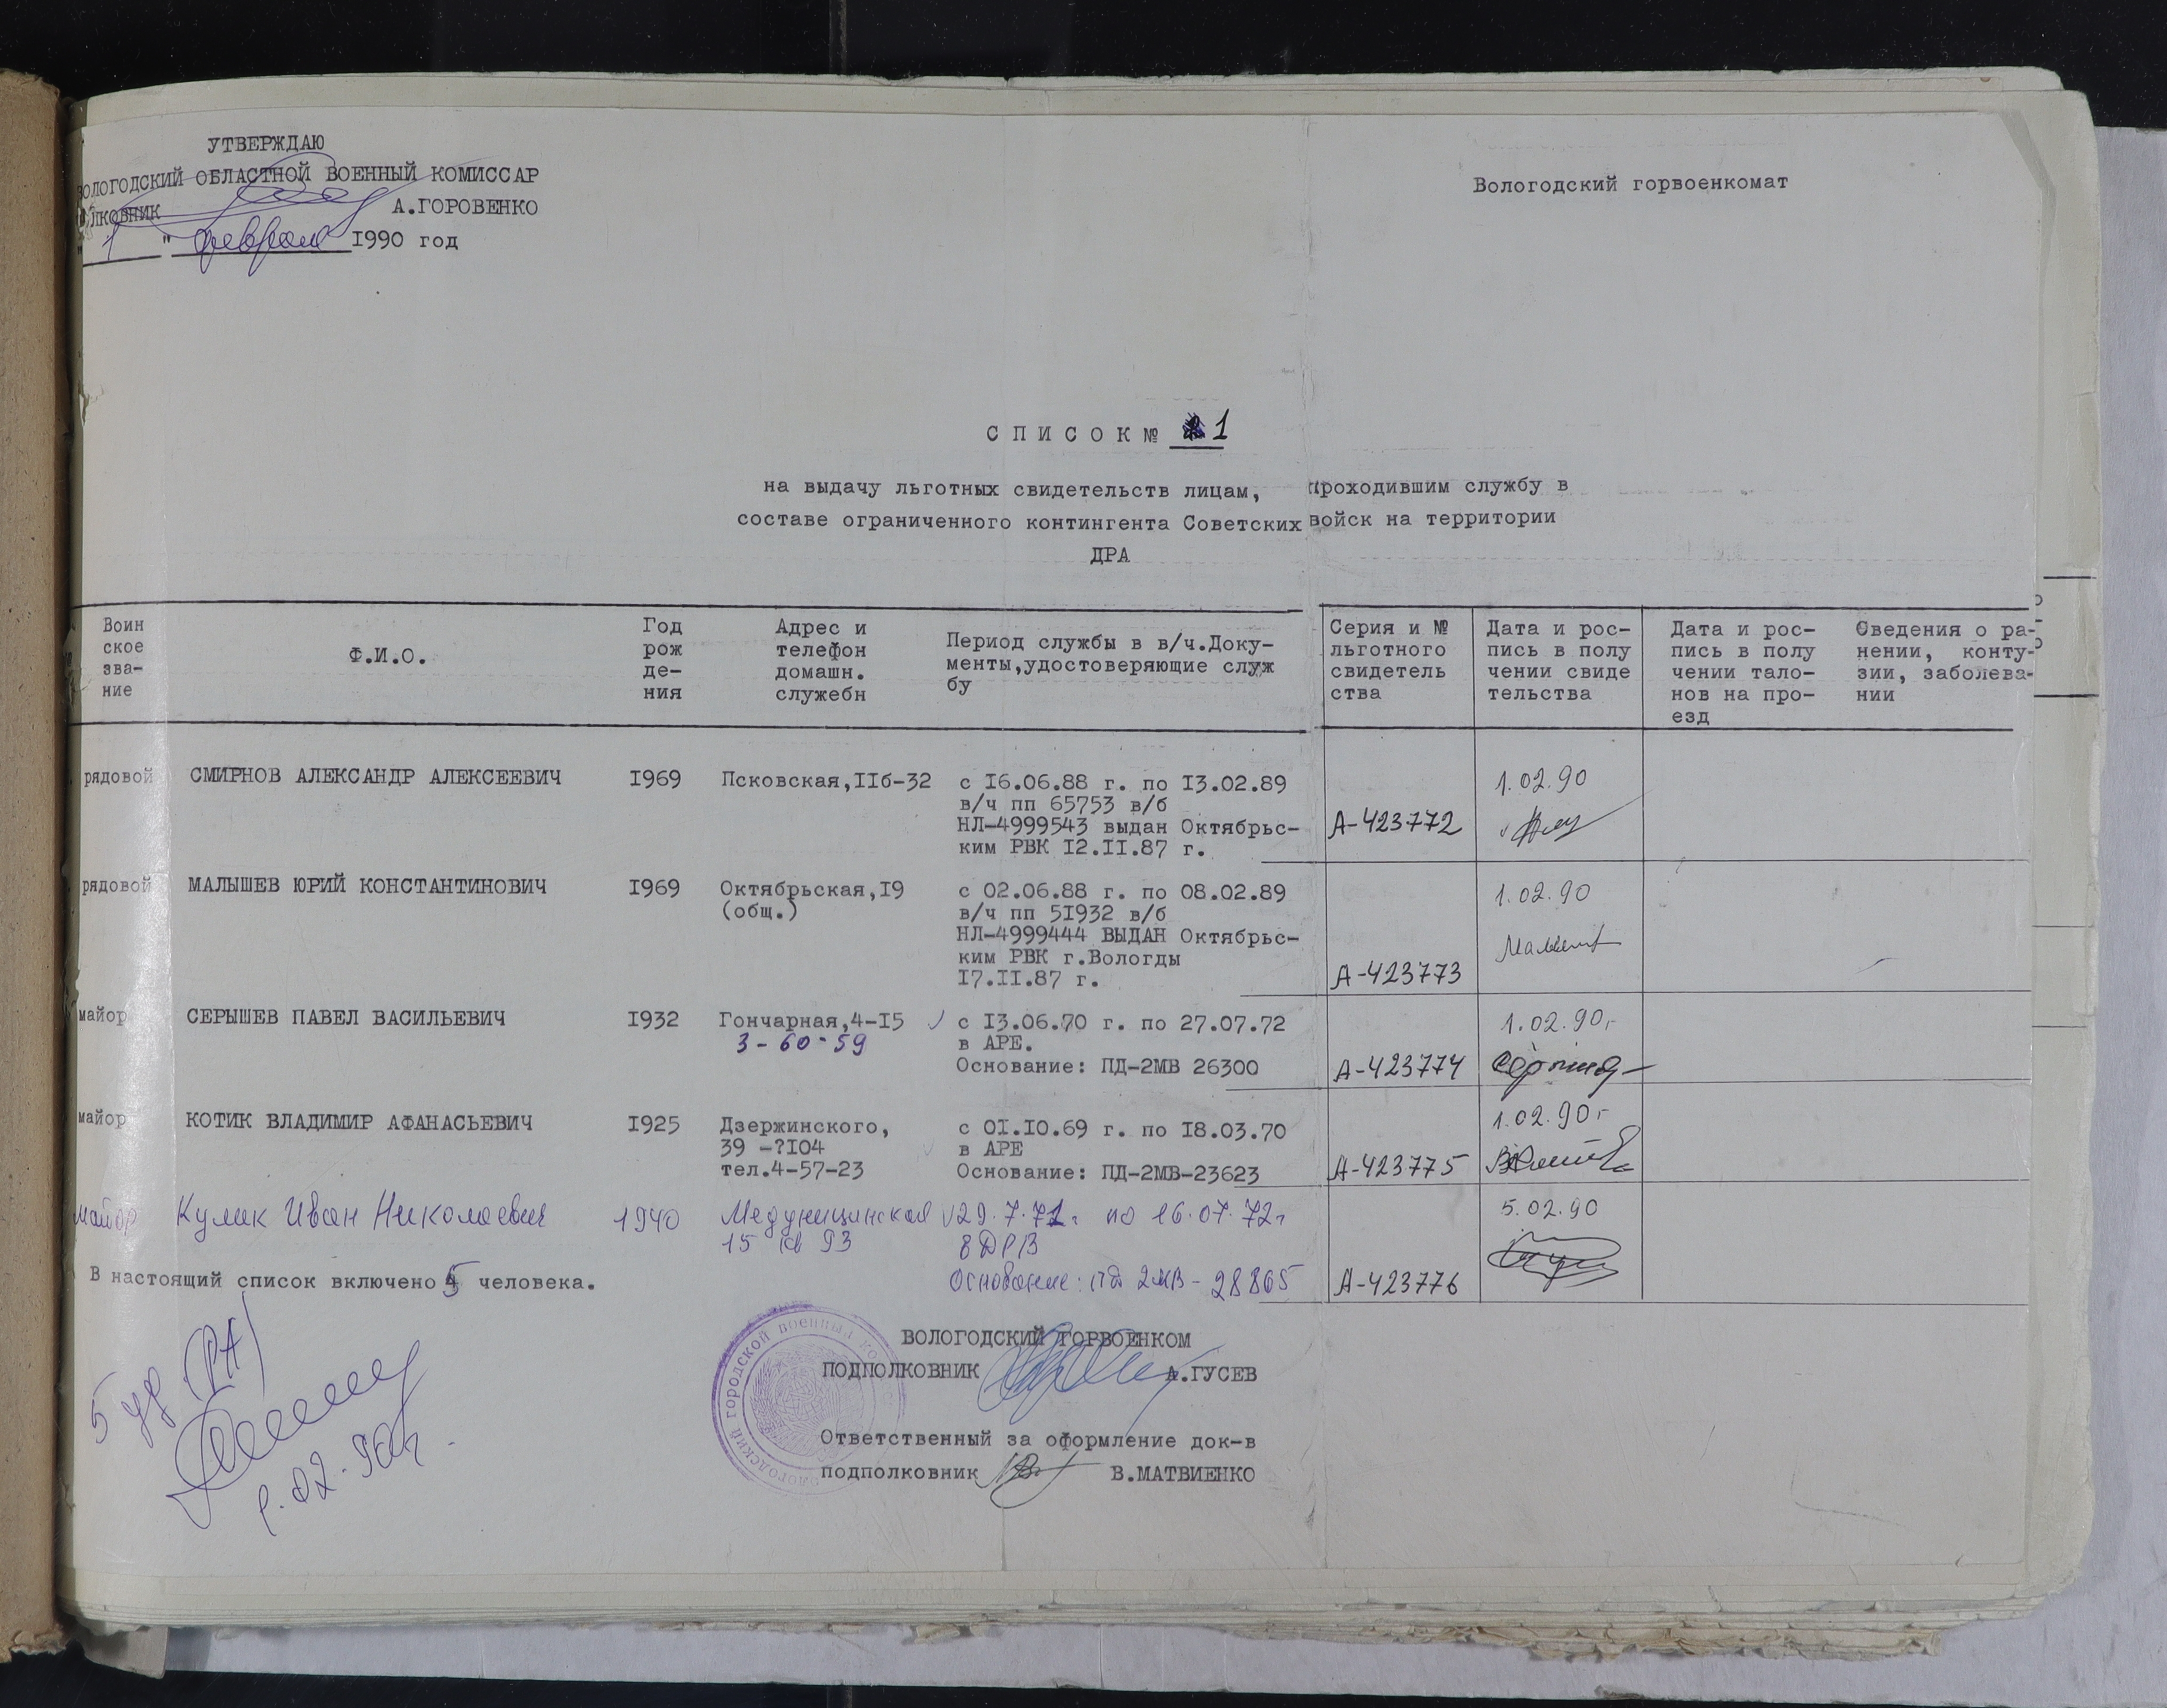 УТВЕРЖДАЮ
ВОЛОГОДСКИЙ ОБЛАСТНОЙ ВОЕННЫЙ КОМИССАР
ПОЛКОВНИК А.ГОРОВЕНКО
" 1 " февраля I990 год
Вологодский горвоенкомат
С П И С О К № 1
на выдачу льготных свидетельств лицам, проходившим службу в
составе ограниченного контингента Советских войск на территории
ДРА
Воин
ское
зва-
ние
Ф.И.О.
Год
рож
де-
ния
Адрес и
телефон
домашн.
служебн
Период службы в в/ч.Доку-
менты,удостоверяющие служ
бу
Серия и №
льготного
свидетель
ства
Дата и рос-
пись в полу
чении свиде
тельства
Дата и рос-
пись в полу
чении тало-
нов на про-
езд
Сведения о ра-
нении, конту-
зии, заболева-
нии
рядовой СМИРНОВ АЛЕКСАНДР АЛЕКСЕЕВИЧ I969 Псковская,IIб-32 с I6.06.88 г. по I3.02.89 1.02.90
в/ч пп 65753 в/б
НЛ-4999543 выдан Октябрьс- А-423772
ким РВК I2.II.87 г.
рядовой МАЛЫШЕВ ЮРИЙ КОНСТАНТИНОВИЧ I969 Октябрьская,I9 с 02.06.88 г. по 08.02.89 1.02.90
(общ.) в/ч пп 5I932 в/б
НЛ-4999444 ВЫДАН Октябрьс-
ким РВК г.Вологды
I7.II.87 г. А-423773
майор СЕРЫШЕВ ПАВЕЛ ВАСИЛЬЕВИЧ I932 Гончарная,4-I5 с I3.06.70 г. по 27.07.72 1.02.90г
3-60-59 в АРЕ.
Основание: ПД-2МВ 26300 А-423774
майор КОТИК ВЛАДИМИР АФАНАСЬЕВИЧ I925 Дзержинского, с 0I.I0.69 г. по I8.03.70 1.02.90г
39 -?I04 в АРЕ
тел.4-57-23 Основание: ПД-2МВ-23623 А-423775
майор Кулик Иван Николаевич 1940 Медуницинская 29.7.71г по 16.07.72г 5.02.90
15 кв 93 в ДРВ
Основание: пд 2МВ-28865 А-423776
В настоящий список включено 5 человека.
ВОЛОГОДСКИЙ ГОРВОЕНКОМ
ПОДПОЛКОВНИК А.ГУСЕВ
Ответственный за оформление док-в
подполковник В.МАТВИЕНКО
5 уд (РА)
1.02.90г.
ВОЛОГОДСКИЙ ГОРОДСКОЙ ВОЕННЫЙ